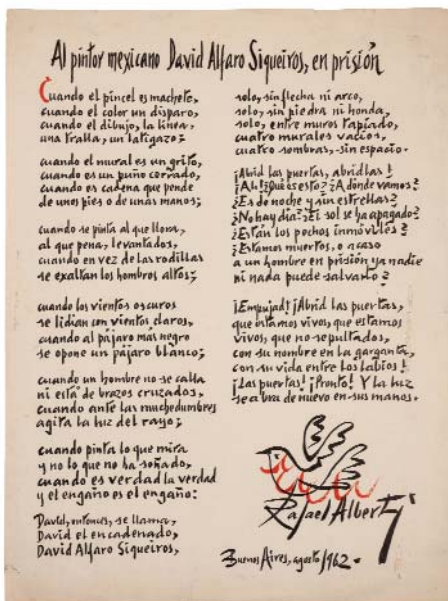 Al pintor mexicano David Alfaro Siqueiros, en prisión
Cuando el pincel es machete,
cuando el color un disparo,
cuando el dibujo, la línea,
una tralla, un latigazo;
cuando el mural es un grito,
cuando es un puño cerrado,
cuando es cadena que pende
de unos pies o de unas manos;
cuando se pinta al que llora,
al que pena, levantados,
cuando en vez de las rodillas
se exaltan los hombros altos;
cuando los vientos oscuros
se lidian con vientos claros,
cuando al pájaro más negro
se opone un pájaro blanco;
cuando un hombre no se calla
ni está de brazos cruzados,
cuando ante las muchedumbres
agita la luz del rayo;
cuando pinta lo que mira
y no lo que no ha soñado,
cuando es verdad la verdad
y el engaño es el engaño:
David, entonces, se llama,
David el encadenado,
David Alfaro Siqueiros,
solo, sin flecha ni arco,
solo, sin piedra ni honda,
solo, entre muros tapiado,
cuatro murales vacíos,
cuatro sombras, sin espacio.
¡Abrid las puertas, abridlas!
¡Ah! ¿Qué es esto? ¿A dónde vamos?
¿Es de noche y sin estrellas?
¿No hay día? ¿El sol se ha apagado?
¿Están los pechos inmóviles?
¿Estamos muertos, o acaso
a un hombre en prisión ya nadie
ni nada puede salvarlo?
¡Empujad! ¡Abrid las puertas,
que estamos vivos, que estamos
vivos, que no sepultados,
con su nombre en la garganta,
con su vida entre los labios!
¡Las puertas! ¡Pronto! Y la luz
se abra de nuevo en sus manos.
Rafael Alberti
Buenos Aires, agosto, 1962.